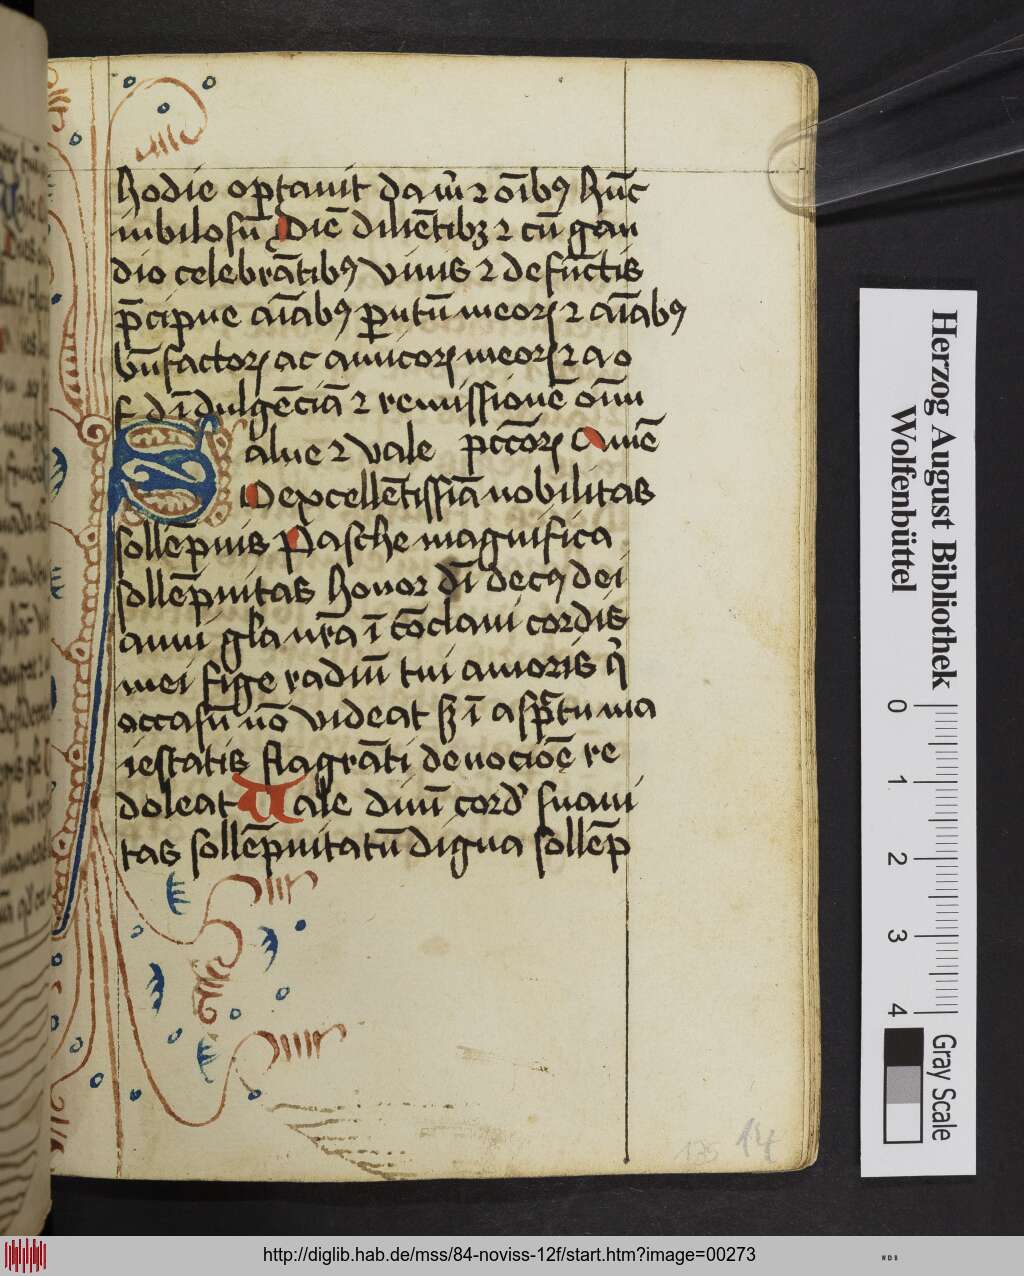 hodie optauit da m̄ ⁊ oībꝰ hūc
iubilosū Diē diliētibꝫ ⁊ cū gau
dio celebrātibꝰ viuis ⁊ defūctis
p̄cipue aīabꝰ parētū meoꝝ ⁊ aīabꝰ
bn̄factoꝝ ac amicoꝝ meoꝝ ⁊
d īdulgēciā ⁊ remissionē oīm
Salue ⁊ vale pcc̄oꝝ Amē
O excellētissīa nobilitas
sollēpnis Pasche magnifica
sollēpnitas honor dī decꝰ dei
animi gl̄a nr̄a ī cōclaui cordis
mei fige radiū tui amoris qͥ
occasū nō videat sꝫ ī aspectu ma
iestatis flagrāti deuociōe re
doleat Vale diuū cord' suaui
tas sollēpnitatū digna sollēp
135 14
Herzog August Bibliothek
Wolfenbüttel
0 1 2 3 4
Gray Scale
http://diglib.hab.de/mss/84-noviss-12f/start.htm?image=00273